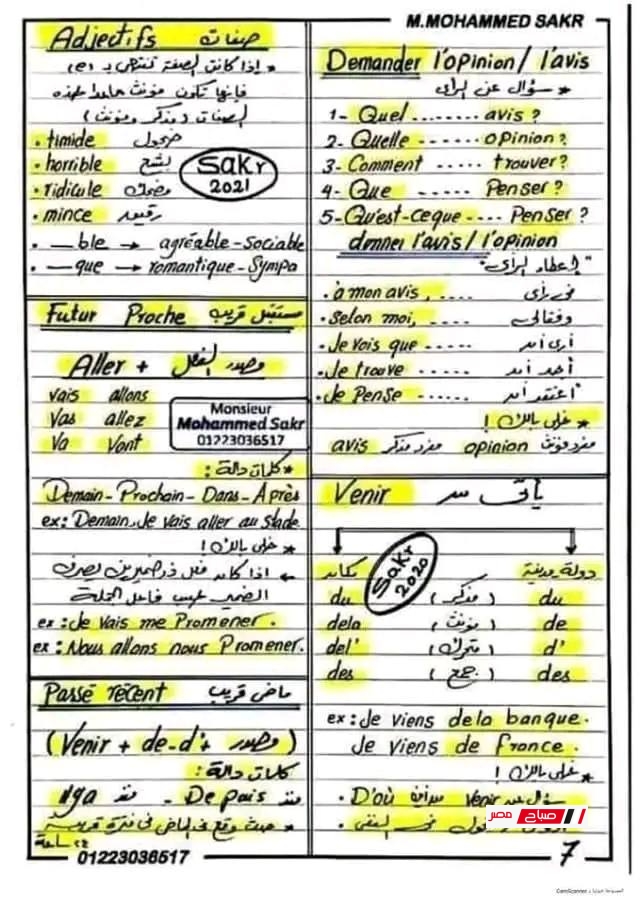 M. MOHAMMED SAKR
Adjectifs صفات
* إذا كانت الصفة تنتهى بـ (e)
فإنها تكون مؤنث
الصفات (مذكر ومؤنث)
. timide خجول
. horrible بشع
. ridicule مضحك
. mince رفيع
Sakr
2021
. —ble → agréable-Sociable
. —que → romantique-Sympa
Futur Proche مستقبل قريب
Aller + مصدر الفعل
vais allons
Vas allez
Va Vont
Monsieur
Mohammed Sakr
01223036517
* كلمات دالة :
Demain-Prochain-Dans-Après
ex: Demain, Je vais aller au stade
* خلى بالك !
← اذا كان فعل ذو ضميرين يصرف
الضمير حسب فاعل الجملة
ex: Je Vais me Promener.
ex: Nous allons nous Promener.
Passé récent ماضى قريب
(Venir + de-d'+ مصدر)
كلمات دالة :
ilya منذ - Depuis منذ
* حدث وقع فى الماضى فى فترة قريبة
٢٤ ساعة
01223036517
Demander l'opinion / l'avis
* سؤال عن الرأى
1- Quel ........ avis ?
2- Quelle ...... opinion ?
3- Comment ..... trouver?
4- Que ...... Penser ?
5- Qu'est-ceque .... Penser ?
donner l'avis / l'opinion
"إعطاء الرأى"
. à mon avis, .... فى رأى
. selon moi, ....
. Je vois que ...... أرى أن
. Je trouve ...... أجد أن
. Je Pense ...... أعتقد أن
* خلى بالك !
avis مفرد مذكر opinion مفرد مؤنث
Venir يأتى من
مكان دولة - مدينة
Sakr
2020
du (مذكر) du
dela (مؤنث) de
del' (متحرك) d'
des (جمع) des
ex: Je viens dela banque.
Je viens de france.
* خلى بالك !
. D'où venir
صباح مصر
7
CamScanner